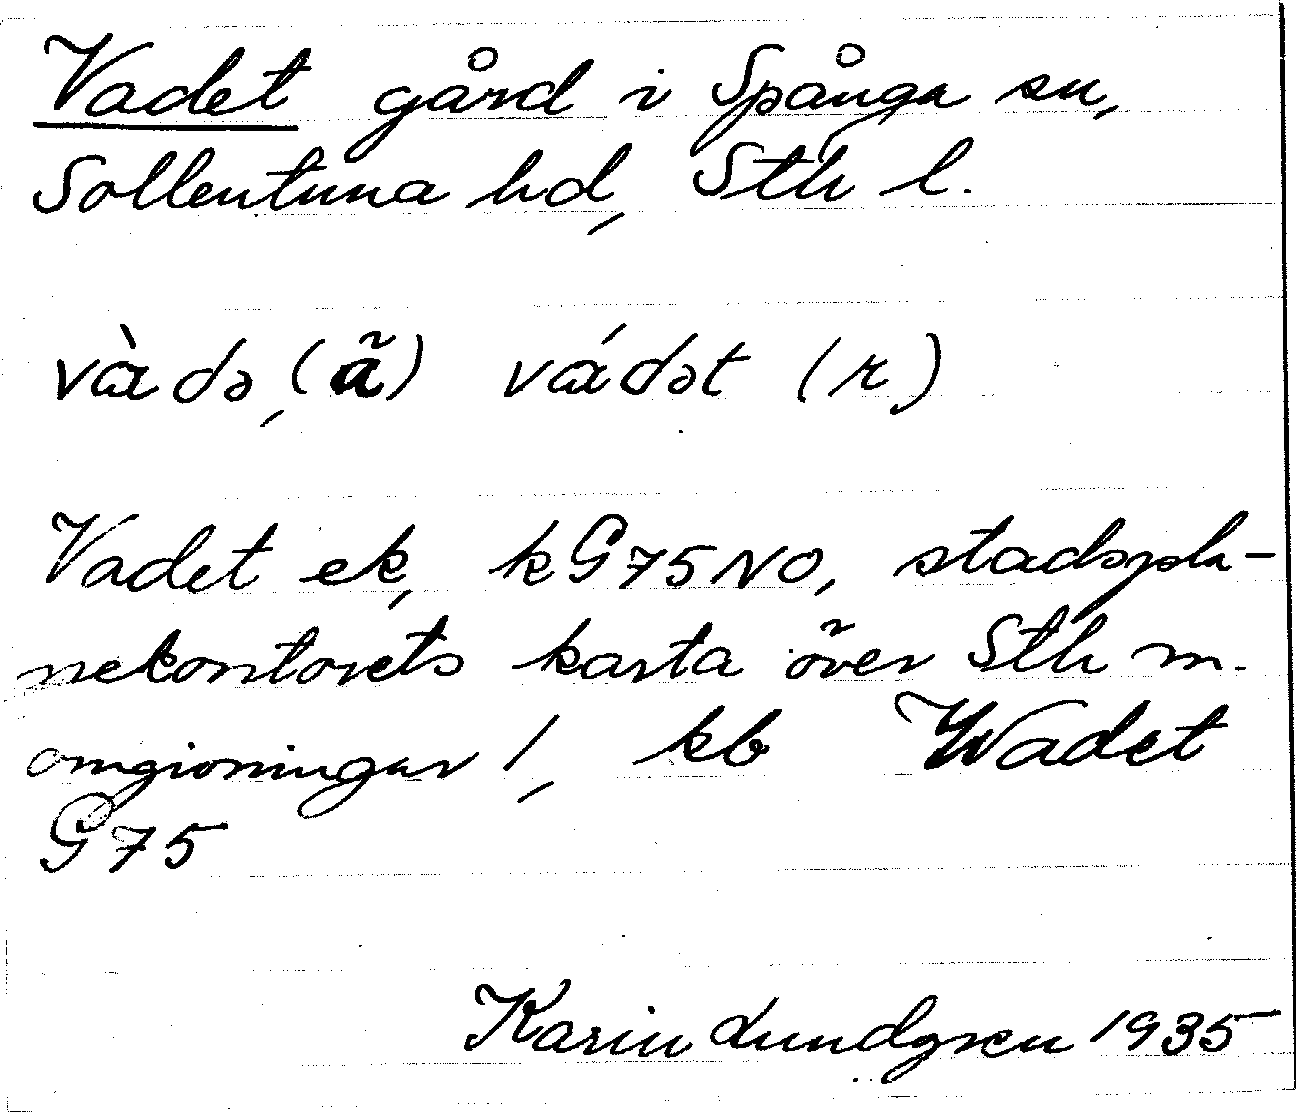 Vadet gård i Spånga sn,
Sollentuna hd, Sth l.
vàdə, (ã) vádət (r)
Vadet ek, kG75NO, stadspla-
nekontorets karta över Sth m.
omgivningar 1, kb Wadet
G75
Karin Lundgren 1935